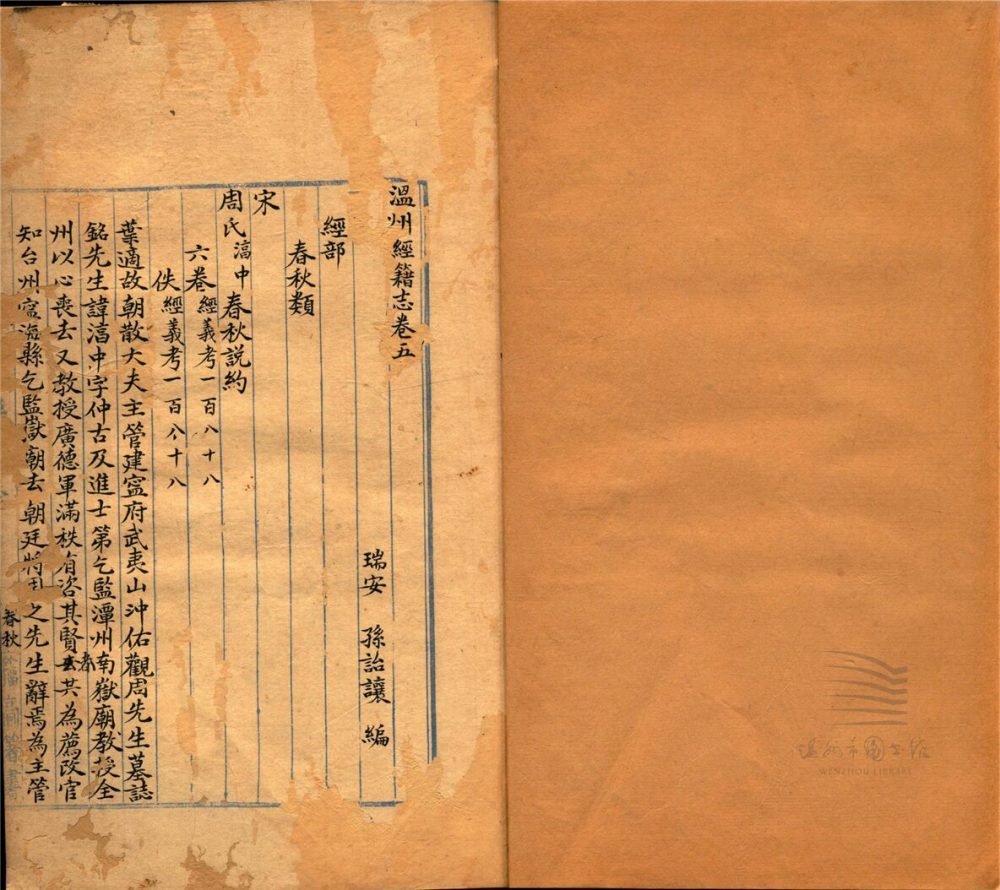 溫州經籍志卷五
瑞安 孫詒讓 編
經部
春秋類
宋
周氏淊中春秋説約
六卷經義考一百八十八
佚經義考一百八十八
葉適故朝散大夫主管建寍府武夷山沖佑觀周先生墓誌
銘先生諱淊中字仲古及進士第乞監潭州南嶽廟教授全
州以心喪去又教授廣德軍滿秩有咨其賢者去共為薦改官
知台州寍海縣乞監嶽廟去朝廷將用之先生辭焉為主管
春秋
溫州市圖書館
WENZHOU LIBRARY